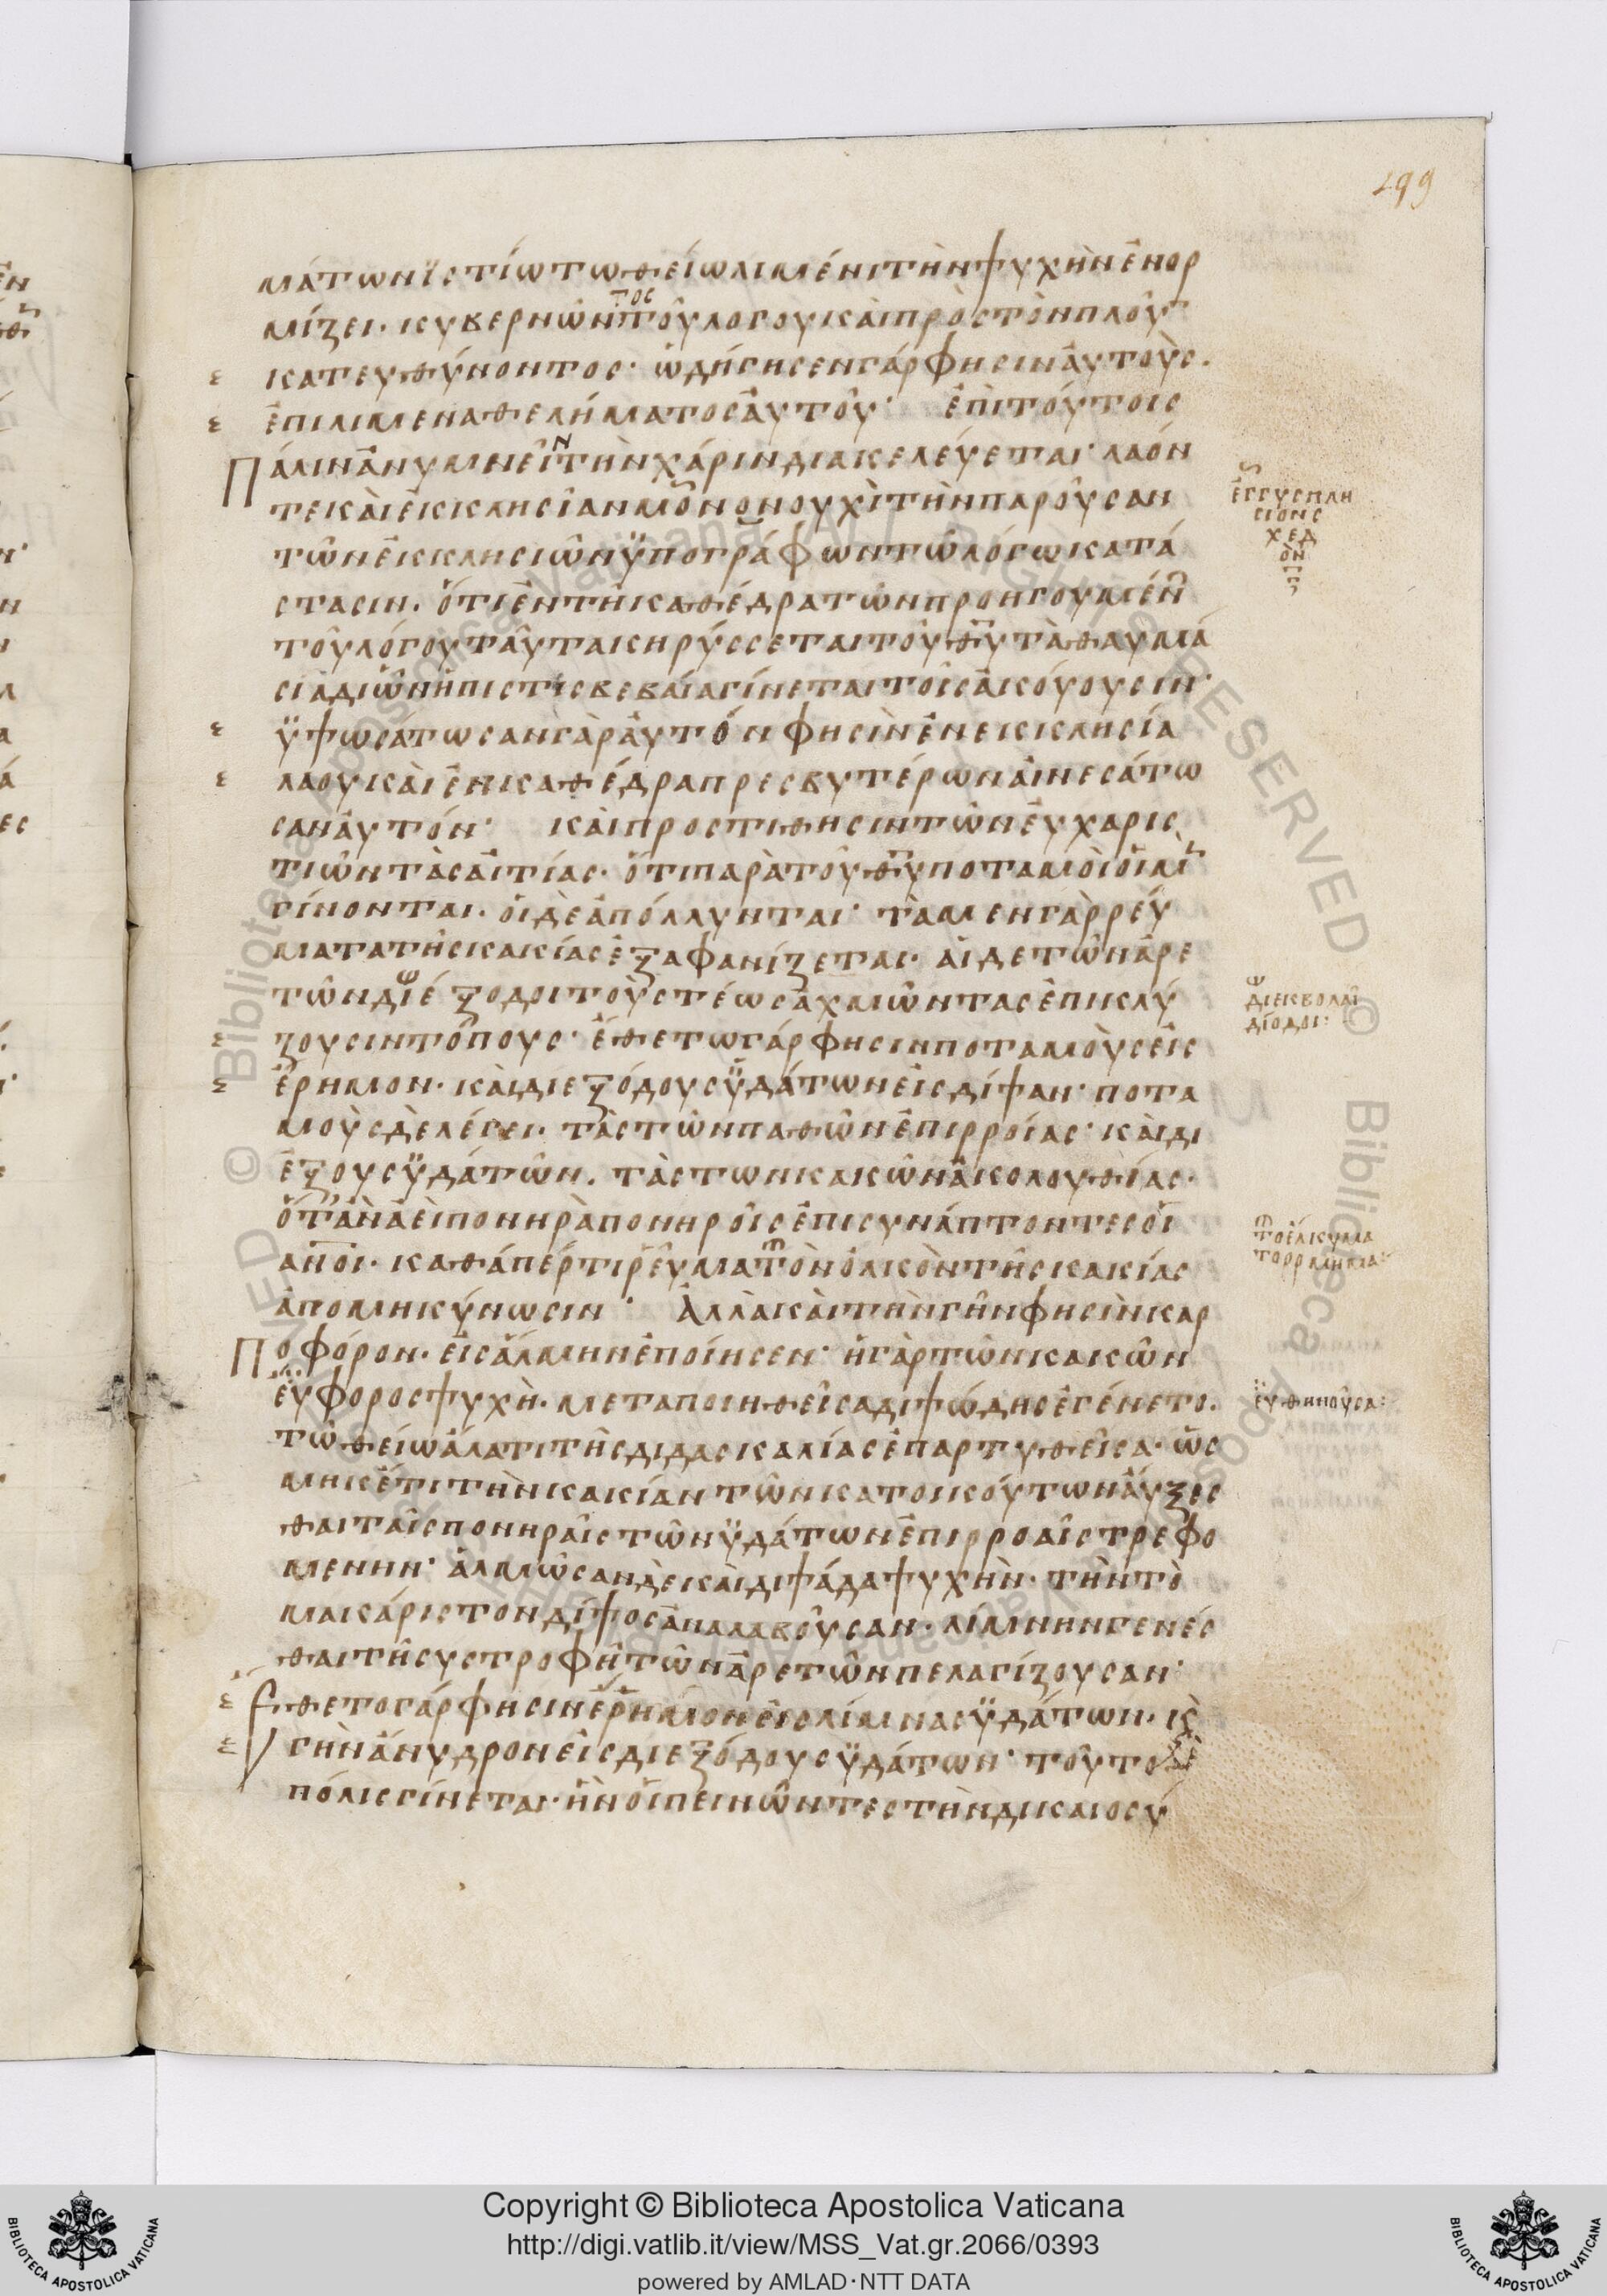 299
μάτων ϊστίω τῶ θείω λιμένι τὴν ψυχὴν ἐνορ
μίζει· κυβερνῶντος τοῦ λογου καὶ πρὸς τὸν πλοῦ
κατευθύνοντος· ὡδήγησεν γάρ φησιν ἀυτοὺς·
ἐπι λιμενα θελήματος ἀυτοῦ· ἐπὶ τούτοις
Πάλιν ἀνυμνεῖν τὴν χάριν διακελέυεται· λαόν
τε καὶ ἐκκλησίαν μὸνον ουχὶ τὴν παροῦσαν
τῶν ἐκκλησιῶν ϋπογράφων τῶ λόγω κατά
στασιν. ὅτι ἐν τῆ καθέδρα τῶν προηγουμέν
τοῦ λόγου τᾶυτα κηρύσσεται τοῦ θυ τὰ θαυμά
σια δι ὧν ἡ πιστις βεβαία γίνεται τοῖς ἀκόυουσιν·
ϋψωσάτωσαν γὰρ ἀυτόν φησὶν ἐν εκκλησία
λαου καὶ ἐν καθέδρα πρεσβυτέρων ἀινεσάτω
σαν ἀυτόν· καὶ προστιθησιν τῶν ἐυχαρις
τιῶν τὰς ἀιτίας· ὅτι παρὰ τοῦ θυ ποταμοὶ οἱ μ
γίνονται. οἱ δὲ ἀπόλλυνται· τὰ μεν γὰρ ρέυ
ματα τῆς κακίας ἐξαφανίζεται· ἁι δε τῶν ἀρε
τῶν διέξοδοι τοὺς τέως ἀχμῶντας ἐπικλύ
ζουσιν τόπους· ἔθετω γάρ φησιν ποταμοὺς εἰς
ἔρημον· καὶ διεξόδους ϋδάτων εἰς δίψαν· ποτα
μοὺς δὲ λέγει· τὰς τῶν παθῶν ἐπιρροίας· καὶ δι
ἐξους ϋδάτων. τὰς των κακῶν ἀκολουθίας·
ὅταν ἀεὶ πονηρὰ πονηροῖς ἐπισυνάπτοντες οἱ
ανοι· καθάπερ τι ρεῦμα τὸν ὁλκὸν τῆς κακίας
ἀπομηκύνωσιν· Ἀλλὰ καὶ τὴν γῆν φησὶν καρ
Ποφόρον· εἰς ἅλμην ἐποίησεν· ἡ γὰρ τῶν κακῶν
ἔυφορος ψυχὴ· μεταποιηθεῖσα διψώδης ἐγένετο·
τῶ θείω ἅλατι τῆς διδασκαλίας ἐπαρτυθεῖσα· ὡς
μηκέτι τὴν κακίαν τῶν κατοικόυτων ἀυξεσ
θαι ταῖς πονηραῖς τῶν ϋδάτων ἐπιρροαῖς τρεφο
μενην· ἁλμῶσαν δὲ καὶ διψάδα ψυχὴν· τὴν τὸ
μακάριστον δίψος ἀναλαβοῦσαν· λίμνην γενέσ
θαι τῆ συστροφῆ τῶν ἀρετῶν πελαγίζουσαν·
ἔθετο γάρ φησιν ἔρημον εἰς λίμνας ϋδάτων· κ
γὴν ἄνυδρον εἰς διεξόδους ϋδάτων· τοῦτο δὲ
πόλις γίνεται· ἣν οἱ πεινῶντες τὴν δικαιοσύ
ἐγγυς πλη
σιον σ
χεδ
ὸν
διεκβολαὶ
δίοδοι:
το ἕλκυσμα
το ὅρμημα:
ἐυθηνοῦσα:
Copyright © Biblioteca Apostolica Vaticana
http://digi.vatlib.it/view/MSS_Vat.gr.2066/0393
powered by AMLAD·NTT DATA
BIBLIOTECA APOSTOLICA VATICANA
BIBLIOTECA APOSTOLICA VATICANA